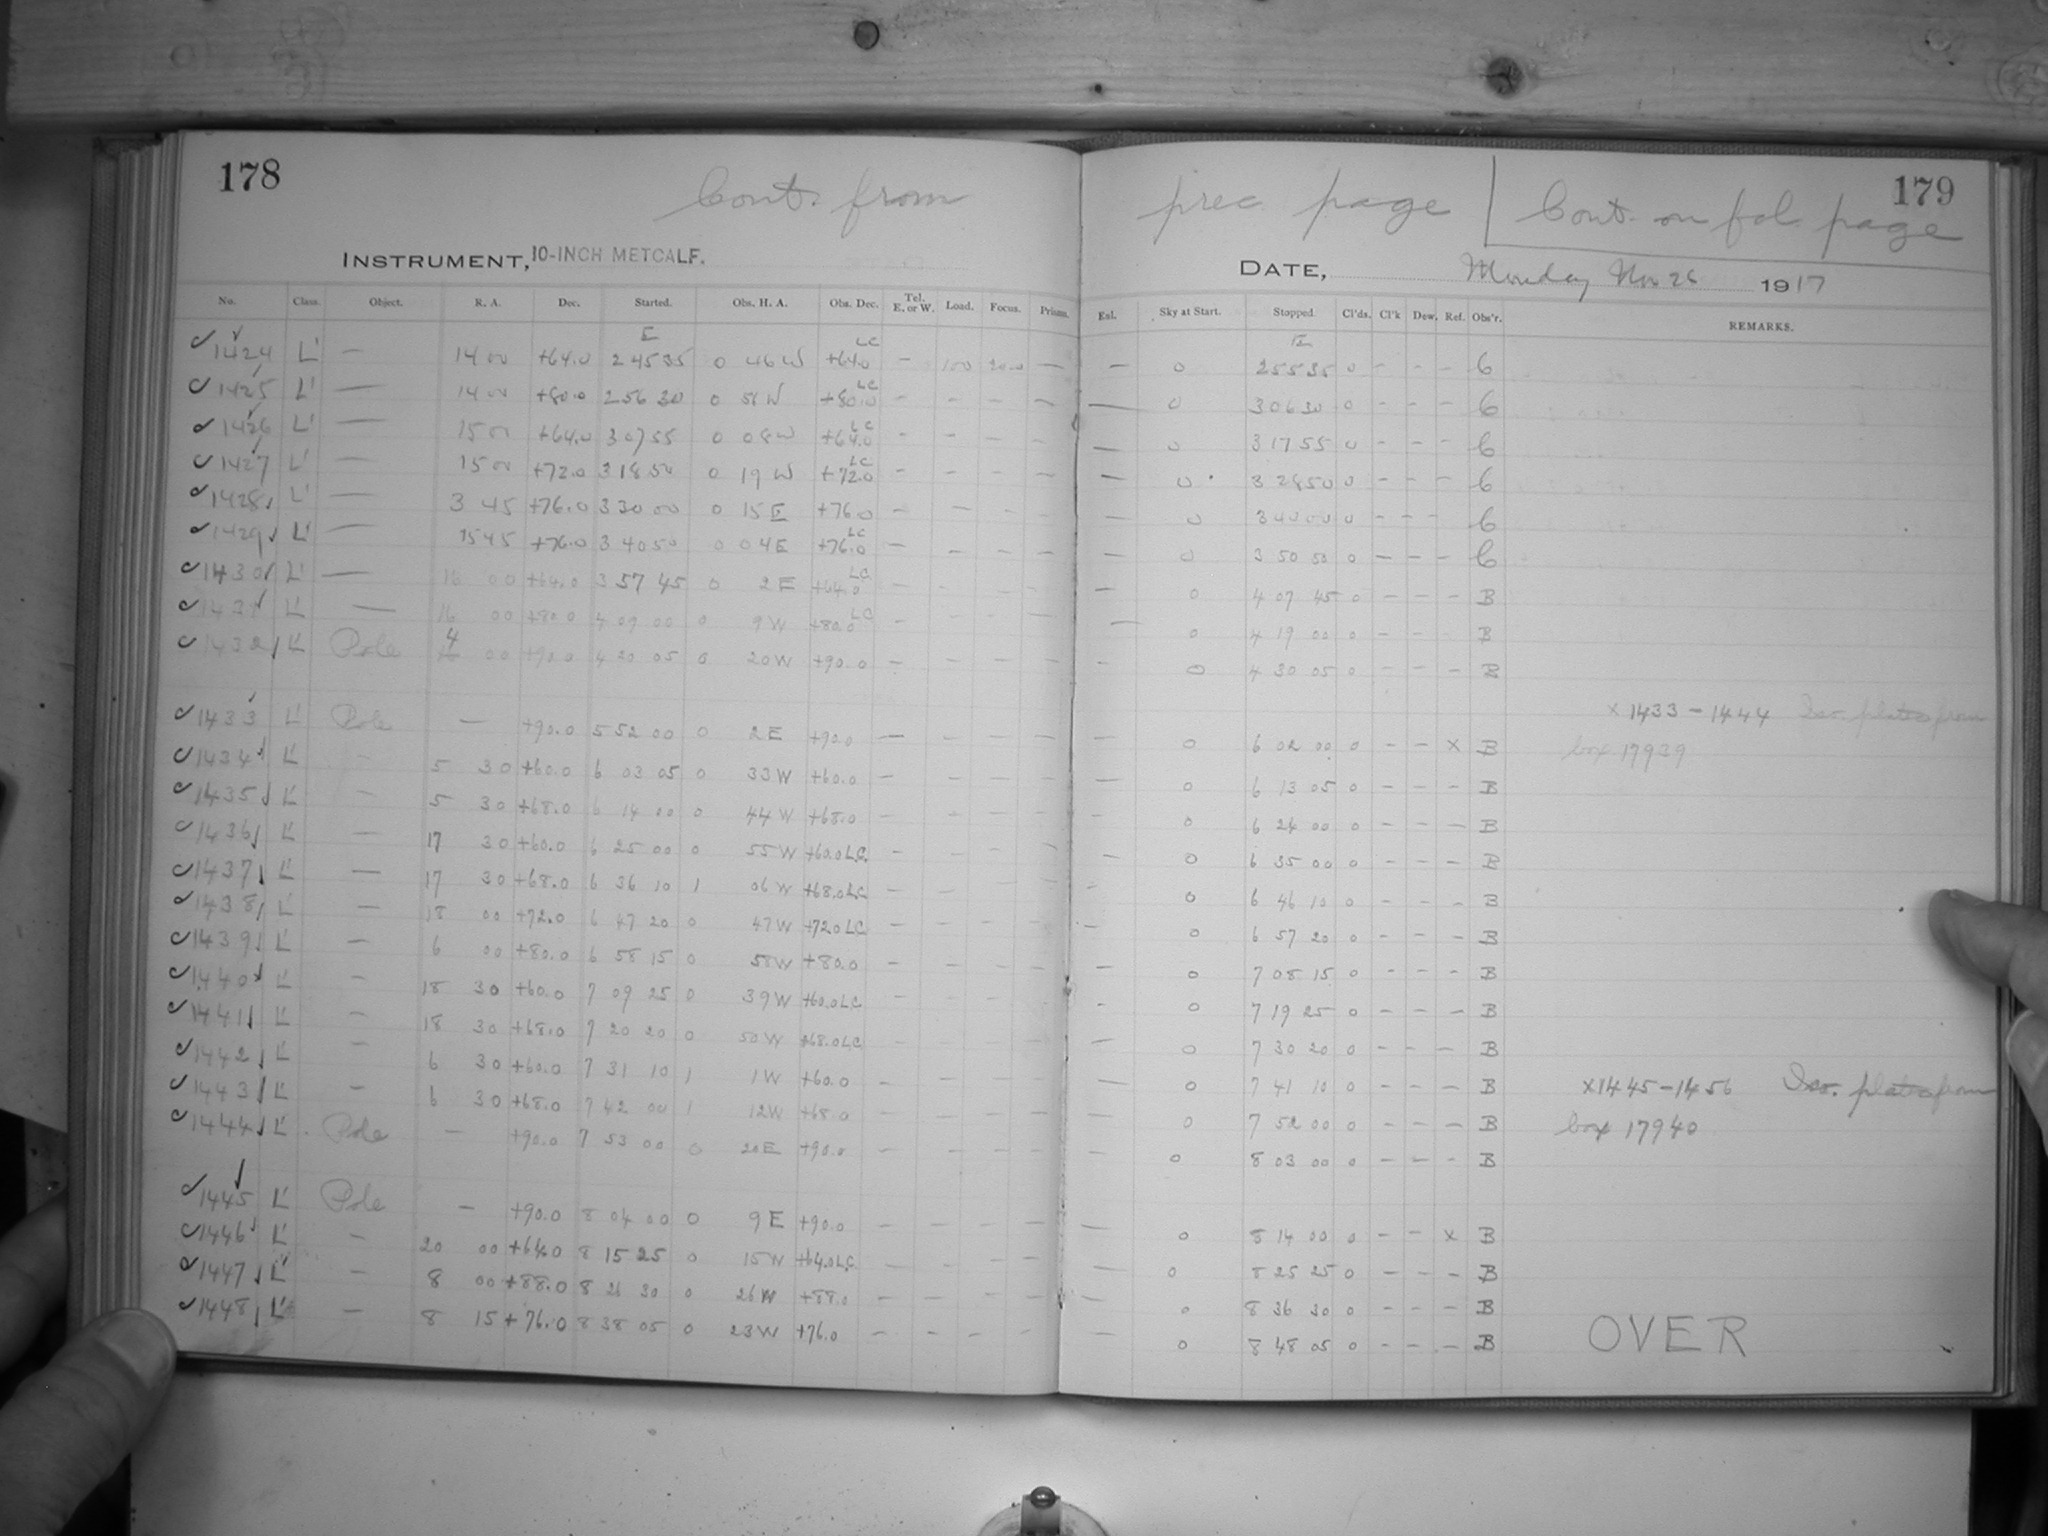 178
Cont. from
prec. page | Cont. on fol. page
179
INSTRUMENT, 10-INCH METCALF.
DATE, Monday Nov 26 1917
No. Class. Object. R. A. Dec. Started. Obs. H. A. Obs. Dec. Tel. E. or W. Load. Focus. Prism. Exl. Sky at Start. Stopped. Cl'ds. Cl'k Dew. Ref. Obs'r. REMARKS.
✓1424 L' — 14 00 +64.0 2 45 35 0 46 W +64.0 LC — 100 20.0 — — 0 2 55 35 0 - - - C
✓1425 L' — 14 00 +80.0 2 56 30 0 58 W +80.0 LC - - - - — 0 3 06 30 0 - - - C
✓1426 L' — 15 00 +64.0 3 07 55 0 08 W +64.0 LC - - - - — 0 3 17 55 0 - - - C
✓1427 L' — 15 00 +72.0 3 18 50 0 19 W +72.0 LC - - - - — 0 3 28 50 0 - - - C
✓1428 L' — 3 45 +76.0 3 30 00 0 15 E +76.0 - - - - — 0 3 40 00 0 - - - C
✓1429 L' — 15 45 +76.0 3 40 50 0 04 E +76.0 LC - - - - — 0 3 50 50 0 - - - C
✓1430 L' — 16 00 +64.0 3 57 45 0 2 E +64.0 LC - - - - — 0 4 07 45 0 - - - B
✓1431 L' — 16 00 +80.0 4 09 00 0 9 W +80.0 LC - - - - — 0 4 19 00 0 - - - B
✓1432 L' Pole 4 00 +90.0 4 20 05 0 20 W +90.0 - - - - - 0 4 30 05 0 - - - B
x 1433 - 1444 Iso. plates from
✓1433 L' Pole — +90.0 5 52 00 0 2 E +90.0 - - - - — 0 6 02 00 0 - - x B box 17939
✓1434 L' - 5 30 +60.0 6 03 05 0 33 W +60.0 - - - - — 0 6 13 05 0 - - - B
✓1435 L' - 5 30 +68.0 6 14 00 0 44 W +68.0 - - - - — 0 6 24 00 0 - - - B
✓1436 L' — 17 30 +60.0 6 25 00 0 55 W +60.0 L.C. - - - - — 0 6 35 00 0 - - - B
✓1437 L' — 17 30 +68.0 6 36 10 1 06 W +68.0 L.C. - - - - - 0 6 46 10 0 - - - B
✓1438 L' — 18 00 +72.0 6 47 20 0 47 W +72.0 L.C. - - - - - 0 6 57 20 0 - - - B
✓1439 L' - 6 00 +80.0 6 58 15 0 58 W +80.0 - - - - — 0 7 08 15 0 - - - B
✓1440 L' - 18 30 +60.0 7 09 25 0 39 W +60.0 L.C. - - - - - 0 7 19 25 0 - - - B
✓1441 L' - 18 30 +68.0 7 20 20 0 50 W +68.0 L.C. - - - - — 0 7 30 20 0 - - - B
✓1442 L' - 6 30 +60.0 7 31 10 1 1 W +60.0 - - - - — 0 7 41 10 0 - - - B x1445-1456 Iso. plates from
✓1443 L' - 6 30 +68.0 7 42 00 1 12 W +68.0 - - - - — 0 7 52 00 0 - - - B box 17940
✓1444 L' Pole — +90.0 7 53 00 0 20 E +90.0 - - - - - 0 8 03 00 0 - - - B
✓1445 L' Pole — +90.0 8 04 00 0 9 E +90.0 - - - - — 0 8 14 00 0 - - x B
✓1446 L' - 20 00 +64.0 8 15 25 0 15 W +64.0 L.C. - - - - — 0 8 25 25 0 - - - B
✓1447 L' - 8 00 +88.0 8 26 30 0 26 W +88.0 - - - - — 0 8 36 30 0 - - - B
✓1448 L' - 8 15 +76.0 8 38 05 0 23 W +76.0 - - - - — 0 8 48 05 0 - - - B
OVER